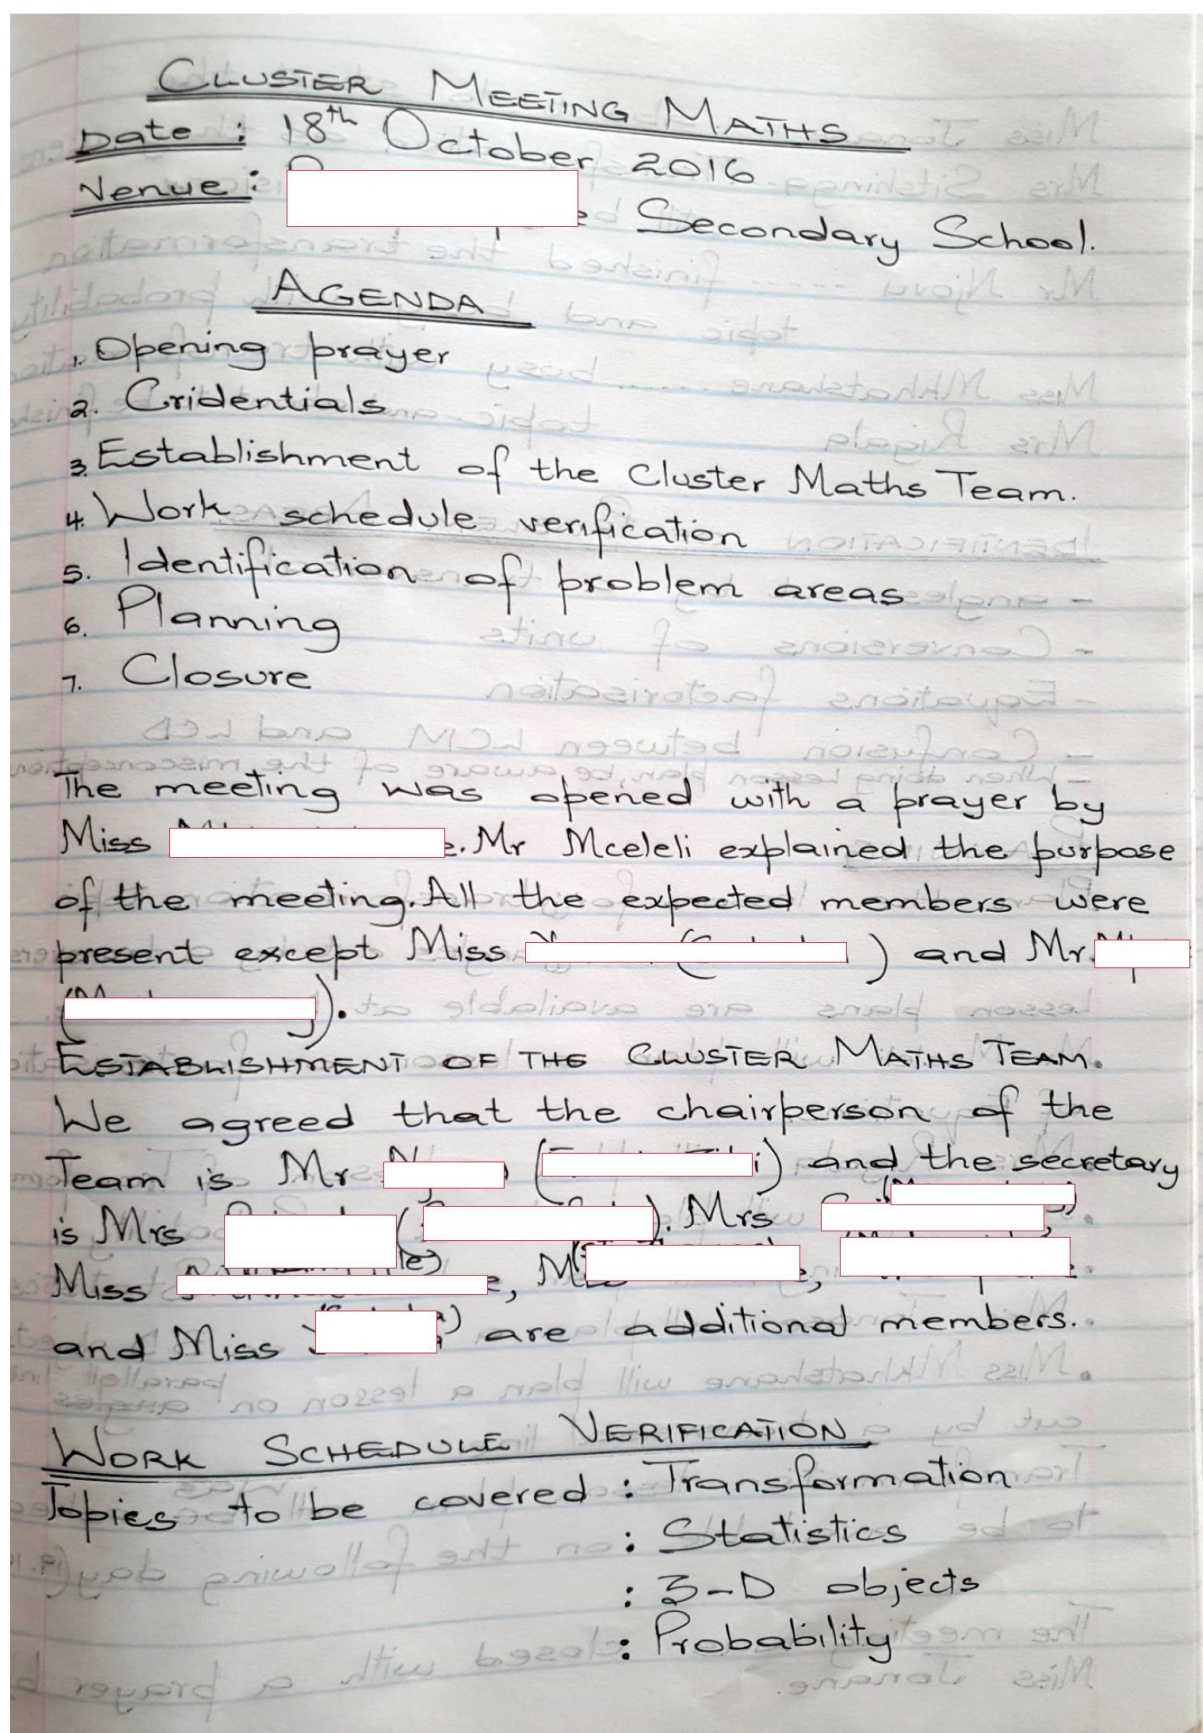 CLUSTER MEETING MATHS
Date : 18th October 2016
Venue : Secondary School.
AGENDA
1. Opening prayer
2. Cridentials
3. Establishment of the Cluster Maths Team.
4. Work schedule verification
5. Identification of problem areas
6. Planning
7. Closure
The meeting was opened with a prayer by
Miss . Mr Mceleli explained the purpose
of the meeting. All the expected members were
present except Miss ( ) and Mr
( ).
ESTABLISHMENT OF THE CLUSTER MATHS TEAM.
We agreed that the chairperson of the
Team is Mr ( ) and the secretary
is Mrs ( ). Mrs
Miss ,
and Miss are additional members.
WORK SCHEDULE VERIFICATION
Topics to be covered : Transformation
: Statistics
: 3-D objects
: Probability